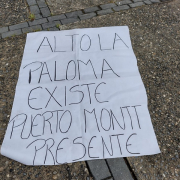 ALTO LA
PALOMA
EXISTE
PUERTO MONTT
PRESENTE